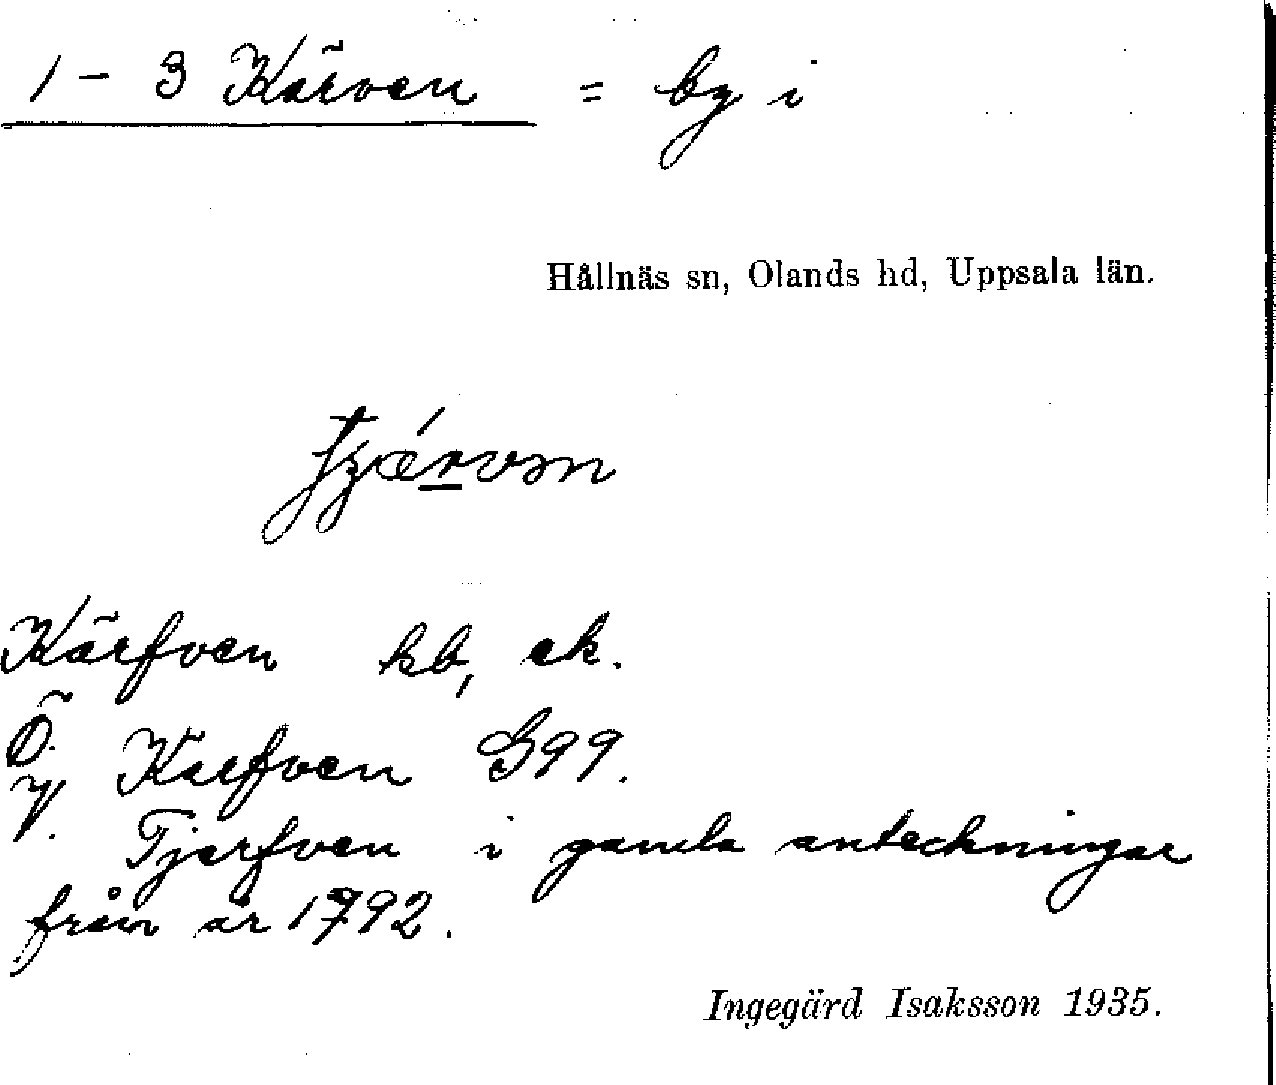 1 - 3 Kärven = by i
Hållnäs sn, Olands hd, Uppsala län.
Kärfven kb, ek.
Ö.
Y. Kerfven G99.
Tjerfven i gamla anteckningar
från år 1792.
Ingegärd Isaksson 1935.